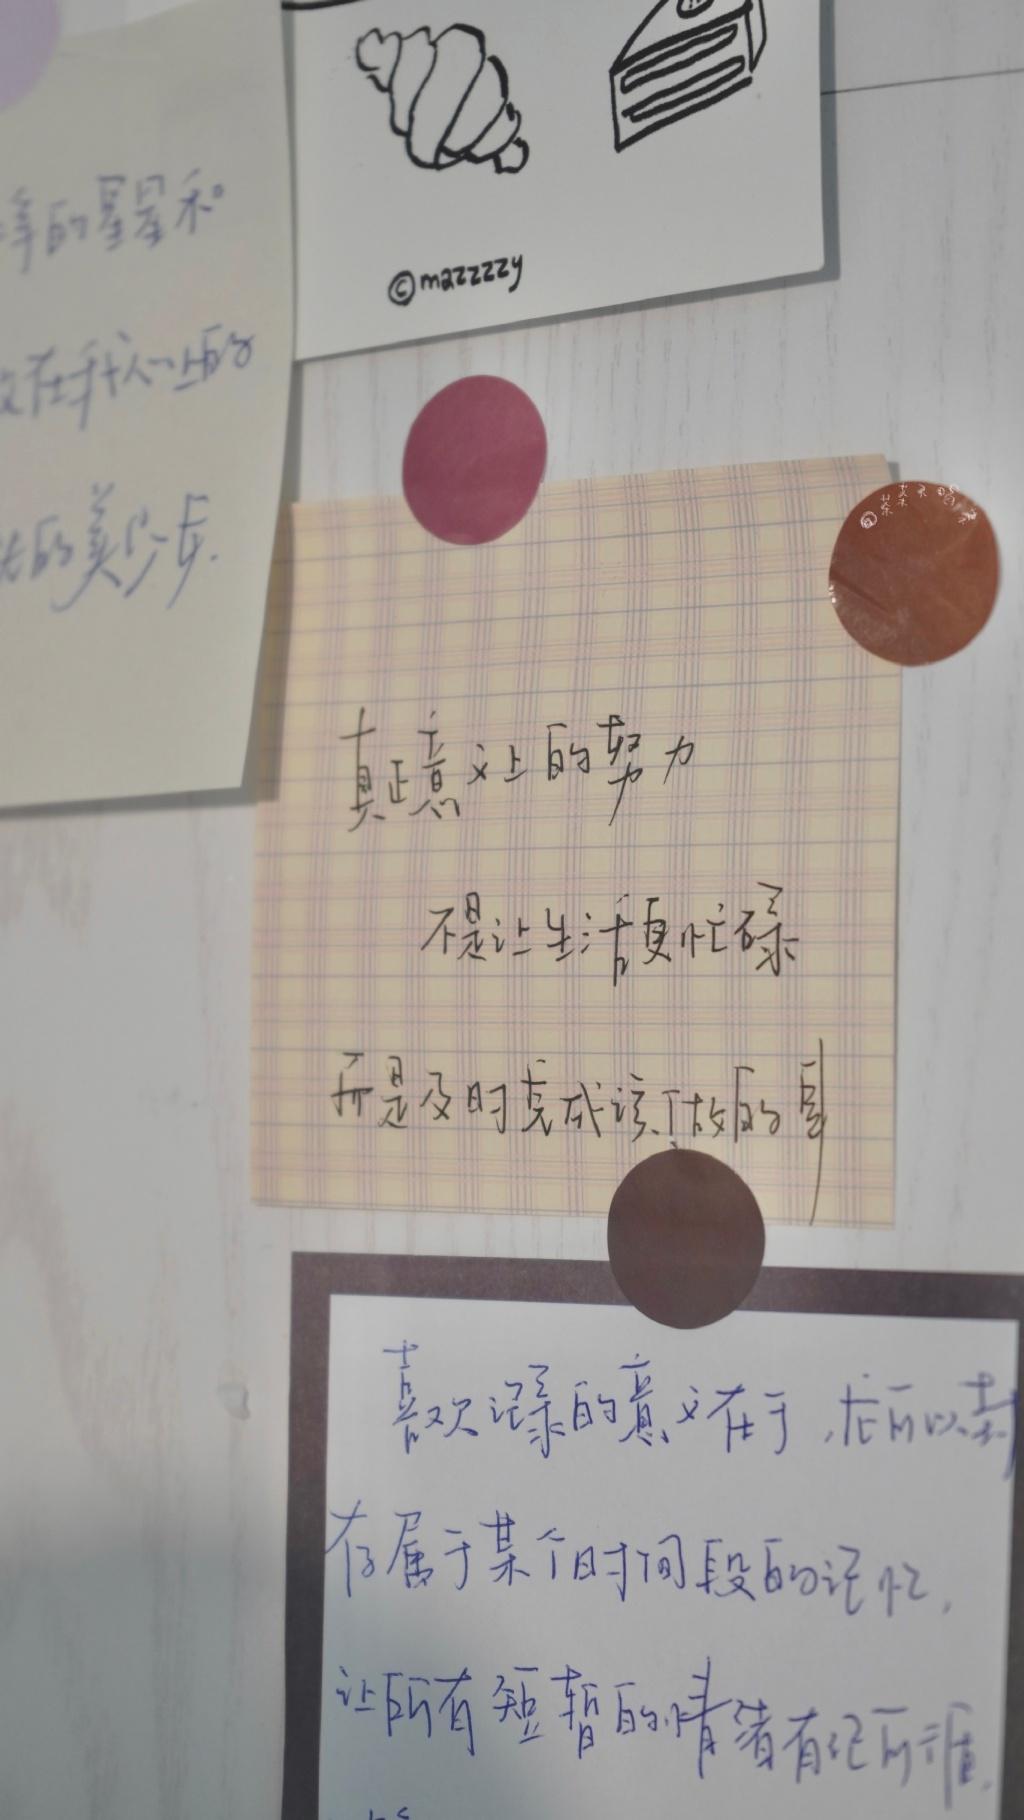 的星星和
在我心上的
的美少年.
©mazzzzzy
真正意义上的努力
不是让生活更忙碌
而是及时完成该做的事
喜欢记录的意义在于,
存属于某个时间段的记忆,
让所有短暂的情绪有记所